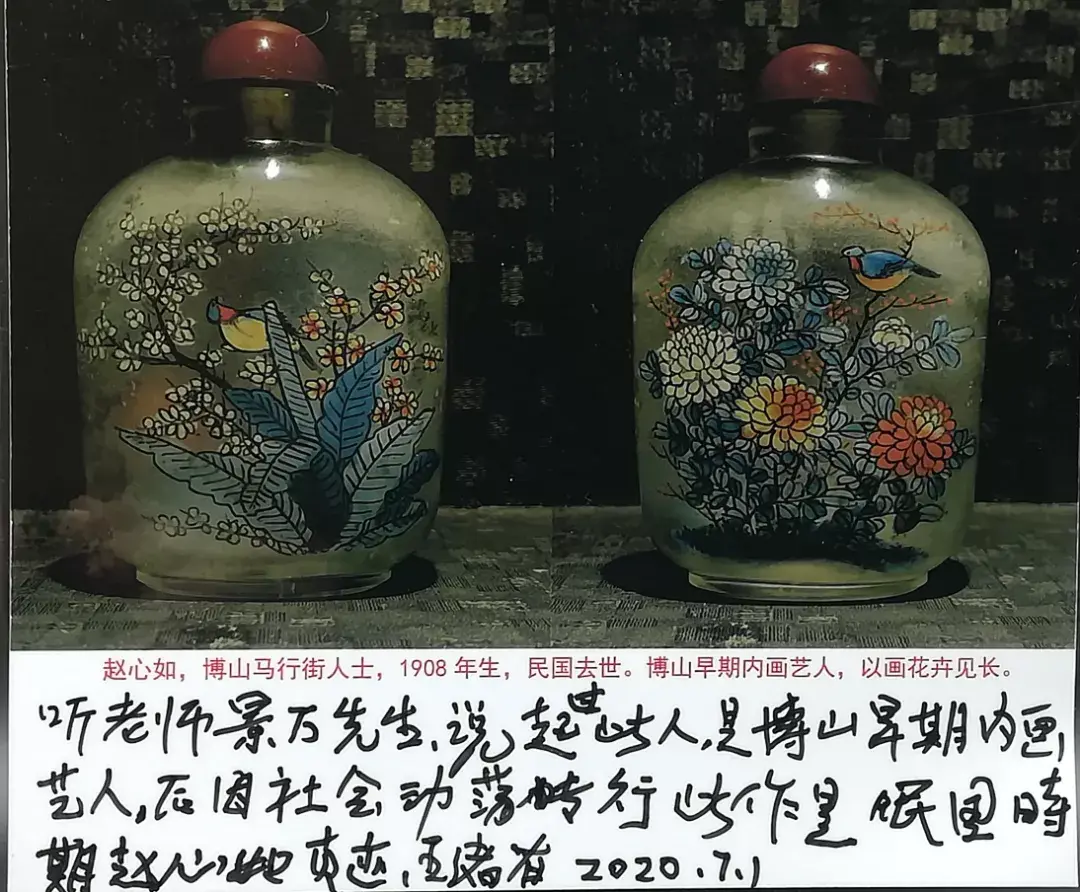 赵心如，博山马行街人士，1908年生，民国去世。博山早期内画艺人，以画花卉见长。
听老师景万先生，说起过此人，是博山早期内画
艺人，后因社会动荡转行此作是民国時
期赵心如真迹，王 2020.7.1